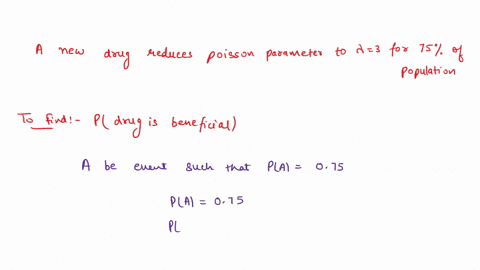 A new drug reduces poisson parameter to λ=3 for 75% of
population
To find:- P( drug is beneficial)
A be event such that P(A) = 0.75
P(A) = 0.75
P(